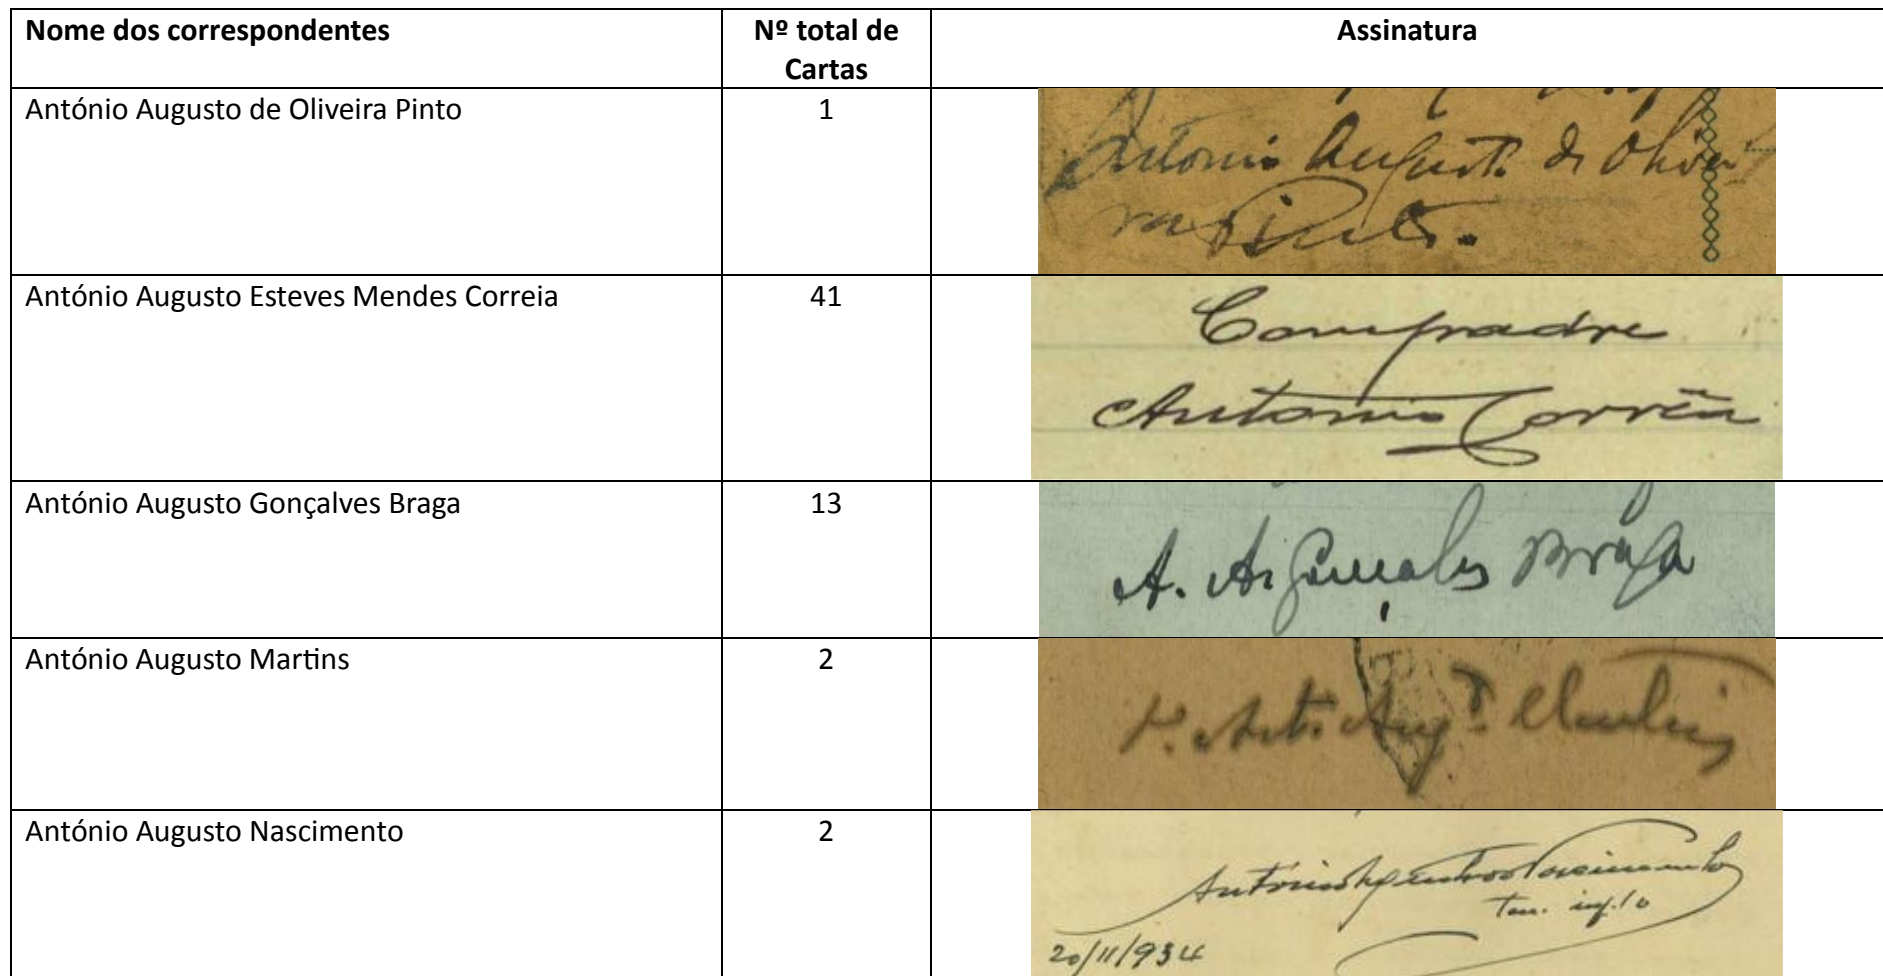 Nome dos correspondentes
Nº total de
Cartas
Assinatura
António Augusto de Oliveira Pinto
1
Antonio Augusto de Olivei
ra Pinto.
António Augusto Esteves Mendes Correia
41
Compadre
Antonio Corrêa
António Augusto Gonçalves Braga
13
A. A. Gonçalves Braga
António Augusto Martins
2
Ant. Aug. Martins
António Augusto Nascimento
2
António Augusto Nascimento
Ten. inf.
20/11/934